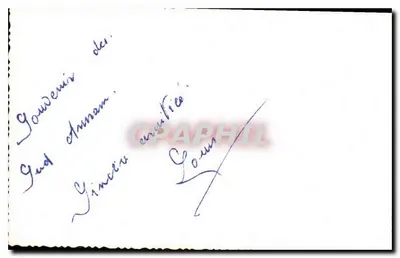 Souvenir du
Sud Annam.
Sincère amitié.
Louis
CPAPHIL